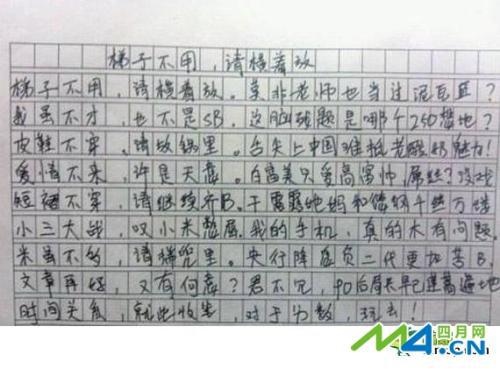 梯子不用,请横着放
梯子不用,请横着放。莫非老师也当过泥瓦匠?
我虽不才,也不是SB。这脑残题是哪个250搞地?
皮鞋不穿,请放锅里。舌尖上中国难抵老酸奶魅力!
爱情不来,许是天意。白富美只爱高富帅,屌丝?没戏
短裙不穿,请继续齐B。干露露她妈和 千丝万缕
小三大战,叹小米憋屈。我的手机,真的木有问题.
米虽不多,请揣兜里。央行降息负二代更加苦B.
文章再好,又有何意?君不见,90后局长早已 遍地
时间关系,就此收笔,对于分数,玩去!
四月网
M4.CN